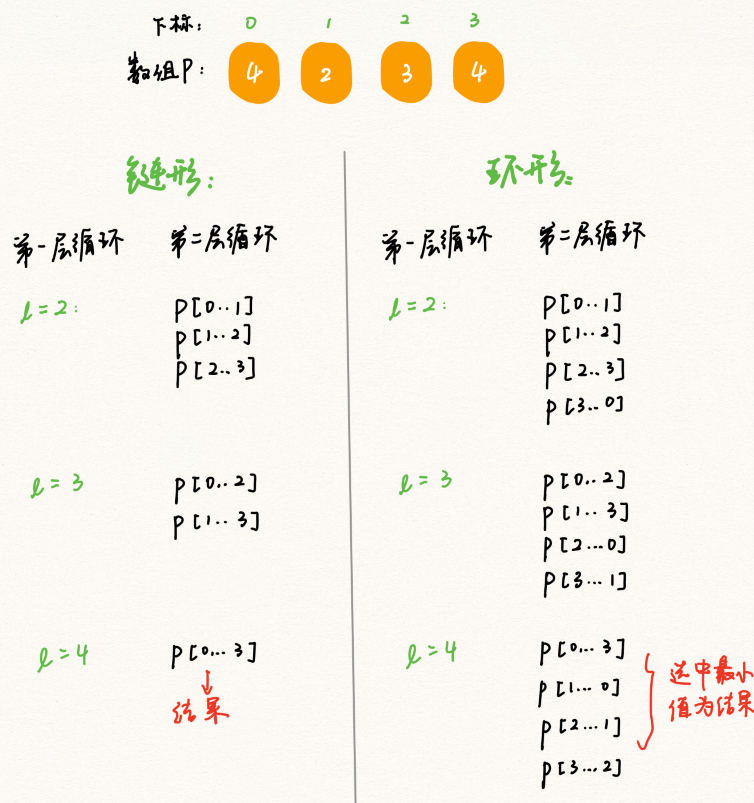 下标: 0 1 2 3
数组P: 4 2 3 4
链形:
第一层循环 第二层循环
l=2:
P[0..1]
P[1..2]
P[2..3]
l=3
P[0..2]
P[1..3]
l=4
P[0...3]
结果
环形:
第一层循环 第二层循环
l=2:
P[0..1]
P[1..2]
P[2..3]
P[3..0]
l=3
P[0..2]
P[1..3]
P[2...0]
P[3...1]
l=4
P[0...3]
P[1...0]
P[2...1]
P[3...2]
选中最小
值为结果